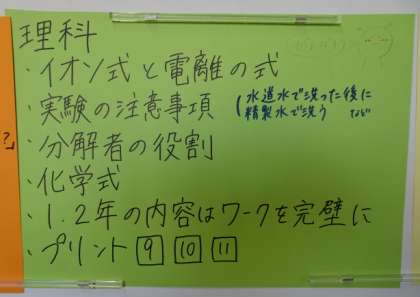 理科
・イオン式と電離の式
・実験の注意事項 (水道水で洗った後に
精製水で洗う など
・分解者の役割
・化学式
・1.2年の内容はワークを完璧に
・プリント 9 10 11
?」